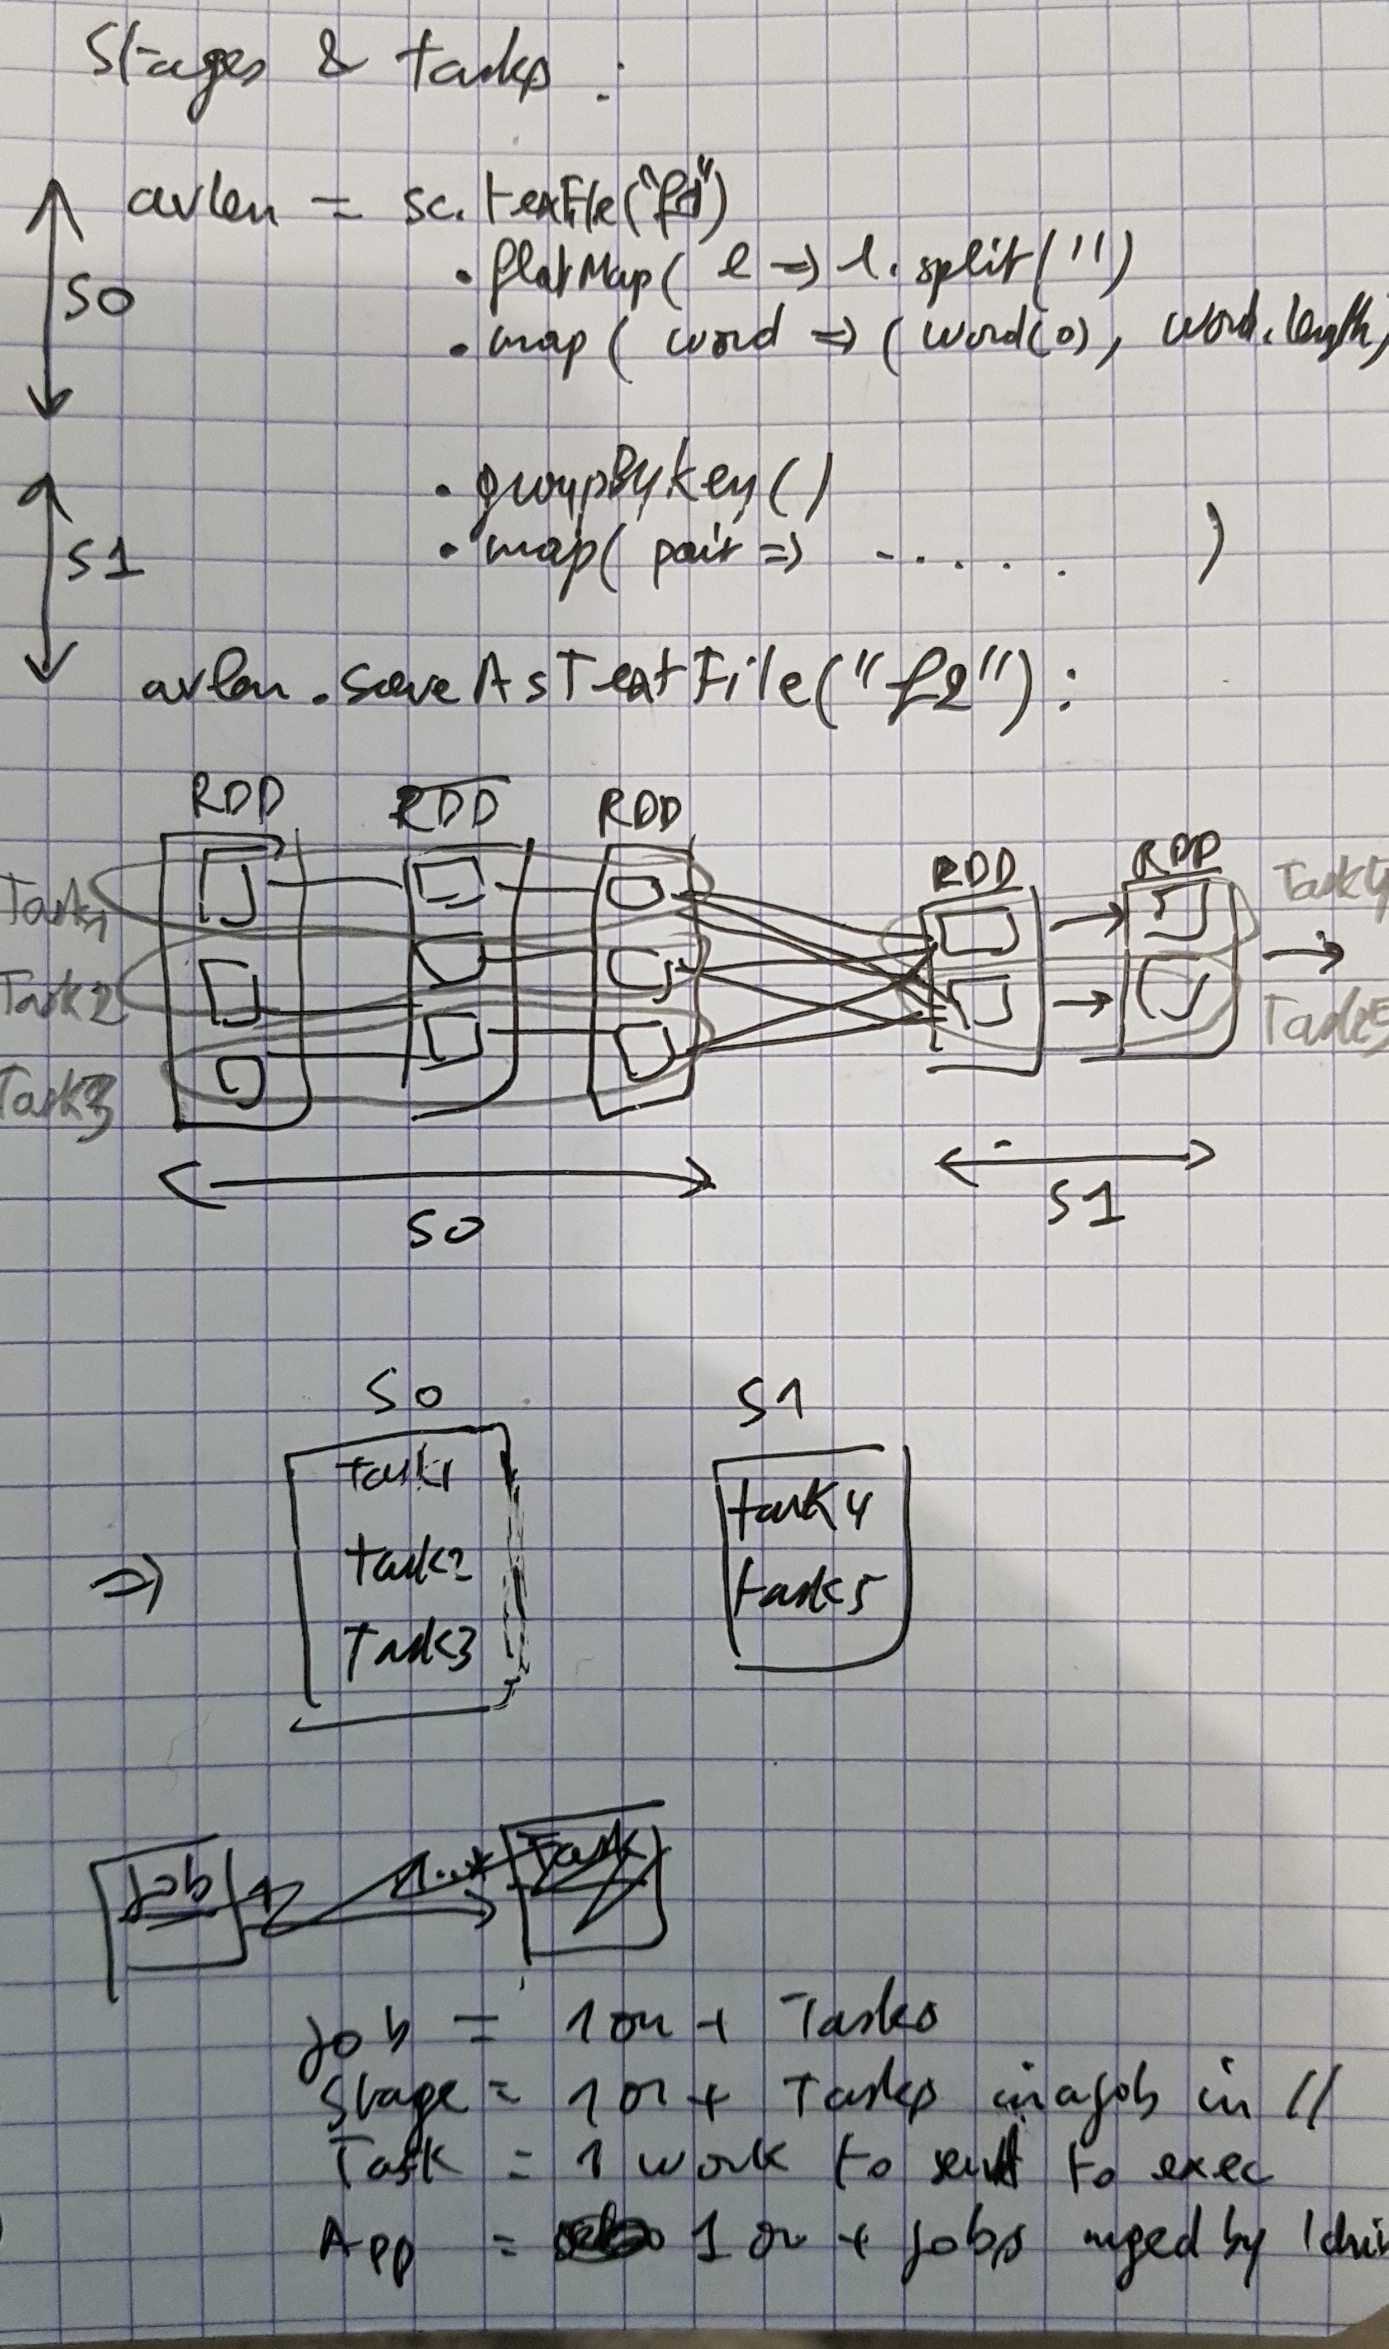 Stages & tasks :
avlen = sc.textFile("f1")
.flatMap( l => l.split(" ")
S0
.map( word => ( word(0), word.length)
.groupByKey()
S1
.map( pair => ..... )
avlen.saveAsTextFile("f2") :
RDD RDD RDD RDD RDD
Task1 Task4
Task2 Task5
Task3
S0 S1
S0 S1
Task1 task4
=> task2 task5
Task3
Job 1..* Task
job = 1 or + Tasks
Stage = 1 or + Tasks in a job in //
Task = 1 work to sent to exec
App = 1 or + jobs mged by 1